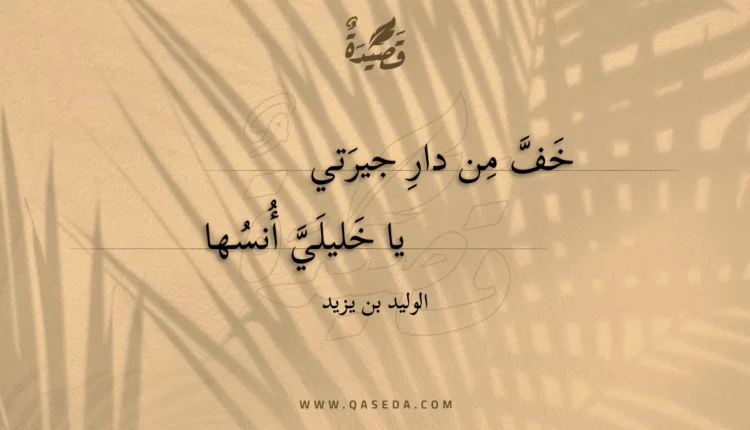 قَصِيْدَةٌ
خَفَّ مِن دارِ جيرَتي
يا خَليلَيَّ أُنسُها
الوليد بن يزيد
WWW.QASEDA.COM